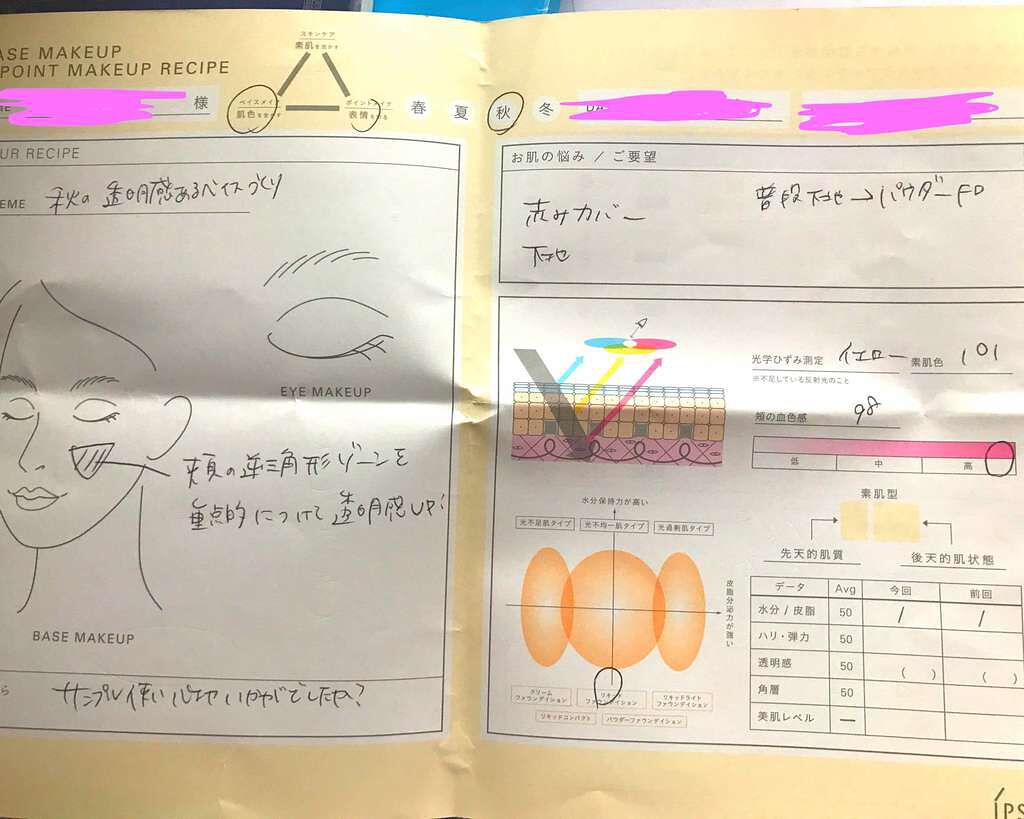 ASE MAKEUP
POINT MAKEUP RECIPE
スキンケア
素肌を生かす
ベイスメイク
肌色を生かす
ポイントメイク
表情をつくる
様
春 夏 秋 冬
UR RECIPE
EME 秋の透明感あるベイスづくり
EYE MAKEUP
頬の逆三角形ゾーンを
重点的につけて透明感UP!
BASE MAKEUP
ら サンプル使い心地いかがでしたか?
お肌の悩み / ご要望
赤みカバー
下地
普段下地→パウダーFD
光学ひずみ測定 イエロー 素肌色 101
※不足している反射光のこと
頬の血色感 98
低 中 高
素肌型
先天的肌質 後天的肌状態
水分保持力が高い
光不足肌タイプ 光不均一肌タイプ 光過剰肌タイプ
皮脂分泌力が強い
クリームファウンデイション
リキッドファウンデイション
リキッドライトファウンデイション
リキッドコンパクト パウダーファウンデイション
データ Avg 今回 前回
水分 / 皮脂 50 / /
ハリ・弾力 50
透明感 50 ( ) ( )
角層 50
美肌レベル —
IPS